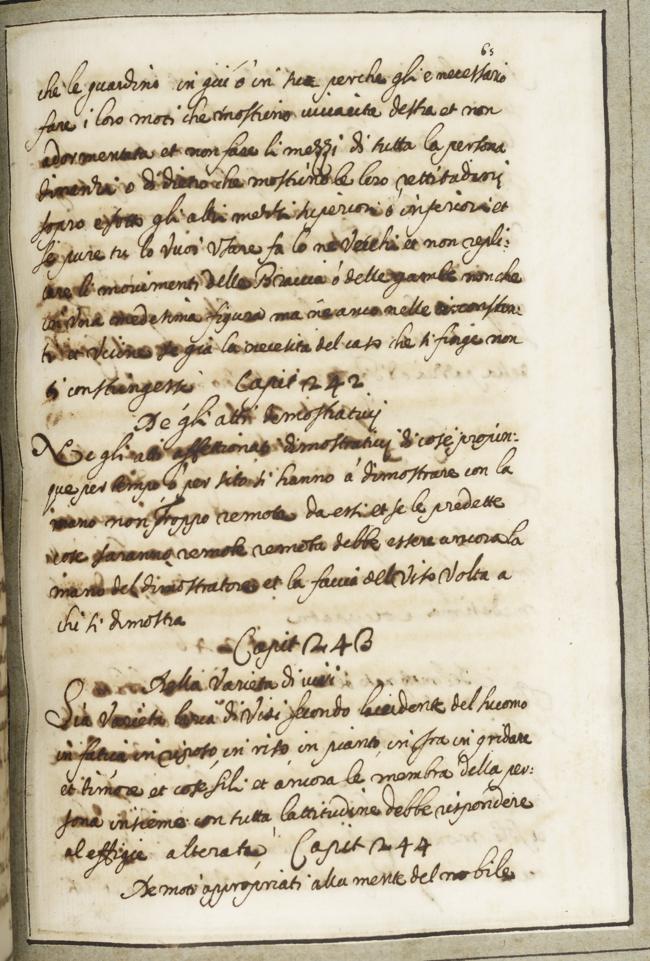 65
che le guardino in giù ó in sù perche gli e necessario
fare i loro moti che mostrino vivacita desta et non
adormentata et non fare li mezzi di tutta la persona
dinenzi o di dietro che mostrino le loro rettitudini
sopra e sotto gli altri membri superiori ó inferiori et
se pure tu lo vuoi usare fa lo ne vecchi et non repli:
care li movimenti delle Braccia ó delle gambe non che
in una medesima figura ma ne anco nelle circonstan:
ti et vicine se già la necesita del caso che si finge non
ti constringessi Capit 242
De gli atti demostrativi
Ne gli atti affettionati dimostrativi di cose propin:
que per tempo ó per sito si hanno á dimostrare con la
mano non troppo remota da essi et se le predette
cose saranno remote remota debbe essere ancora la
mano del dimostratore et la faccia del viso volta a
chi si dimostra
Capit 243
Della Varieta di visi
Sia Varieta di Visi secondo lacidente del huomo
in fatica in riposo in riso in pianto in ira in gridare
et timore et cose sili et ancora le membra della per:
sona insieme con tutta lattitudine debbe rispondere
al effigie alterata Capit 244
De moti appropriati alla mente del nobile